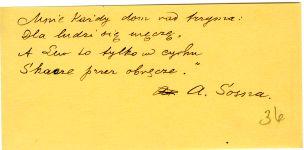 Mnie każdy dom rad trzyma:
Dla ludzi się męczę,
A Lew to tylko w cyrku
Skacze przez obręcze."
A. Sosna.
36